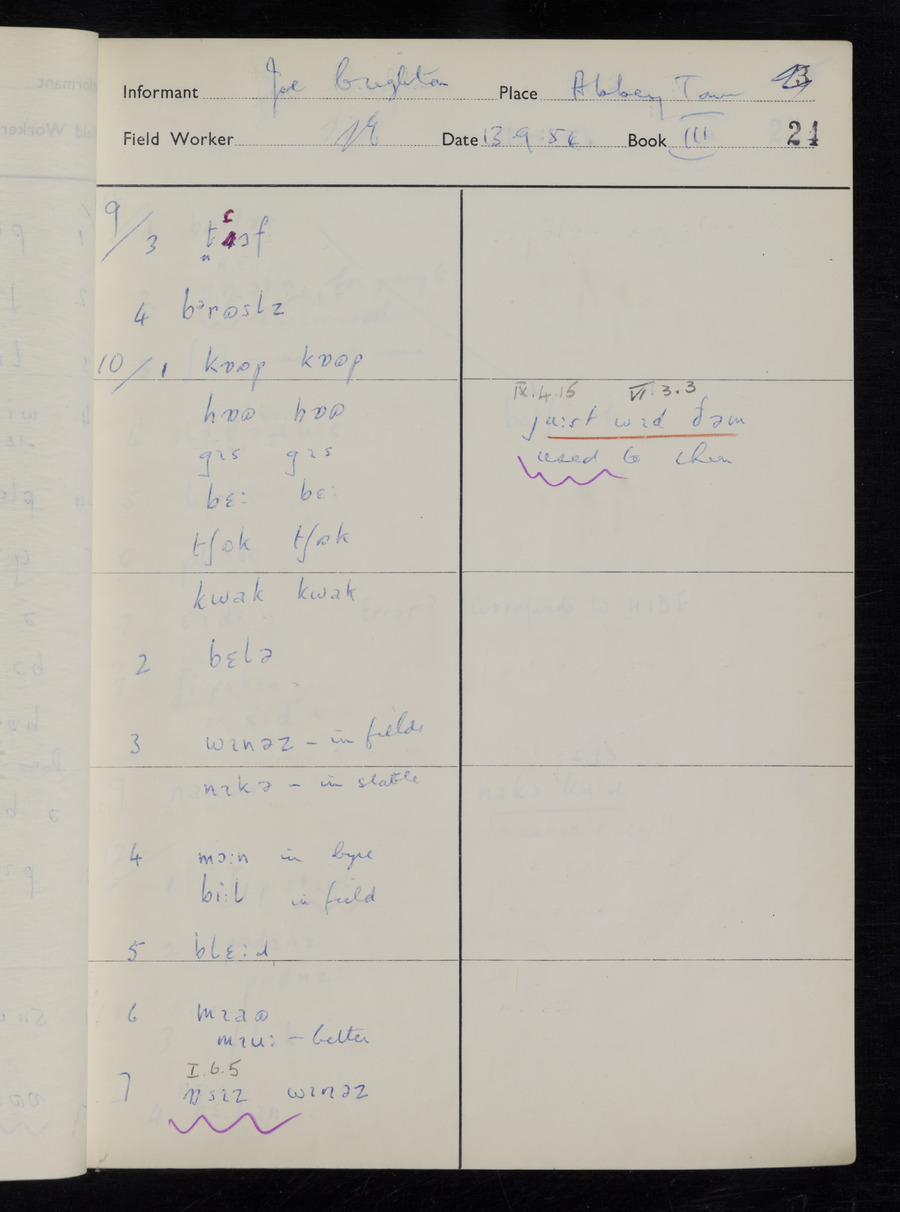 Informant Joe Brighton Place Abbey Town 13
Field Worker Date 13.9.54 Book III 24
9/3
4 bərɒslz
10/1 kʊɒp kʊɒp
hɒɒ hɒɒ
IX.4.15 VI.3.3
ju:st wɪd ðəm
gɪs gɪs
used to them
bɛ: bɛ:
tʃɒk tʃɒk
kwak kwak
2 bɛlə
3 wɪnəz – in fields
nɪkə – in stable
4 mɔ:n in byre
bi:l in field
5 blɛ:d
6 mɪaɒ
mɪu: – better
I.6.5
7 wɪnəz